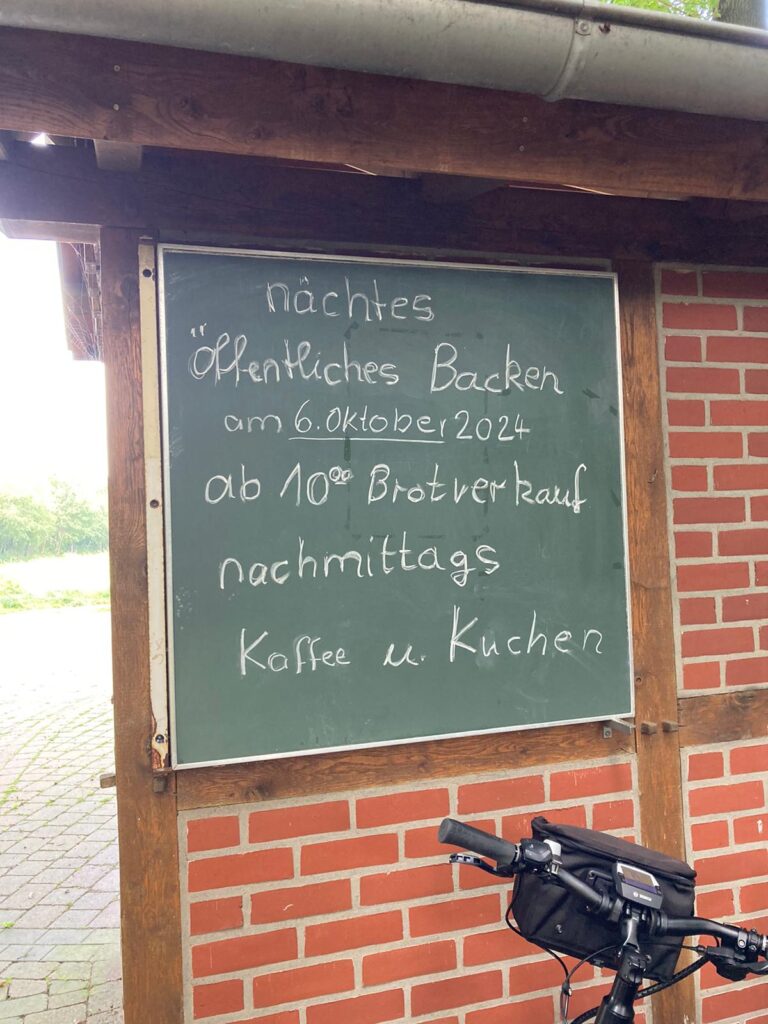 nächtes
Öffentliches Backen
am 6. Oktober 2024
ab 10⁰⁰ Brotverkauf
nachmittags
Kaffee u. Kuchen
BOSCH